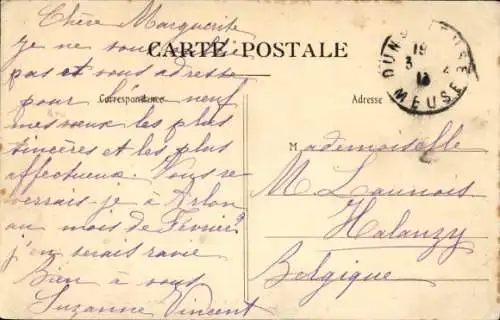 Chère Marguerite
Je ne vous
CARTE POSTALE
pas et vous adresse
pour l'an neuf
Correspondance
Adresse
mes vœux les plus
sincères et les plus
affectueux. Vous re
verrais-je à Arlon
au mois de Février?
j'en serais ravie
Bien à vous
Suzanne Vincent
DUN-S-MEUSE
MEUSE
Mademoiselle
M Launois
Halanzy
Belgique